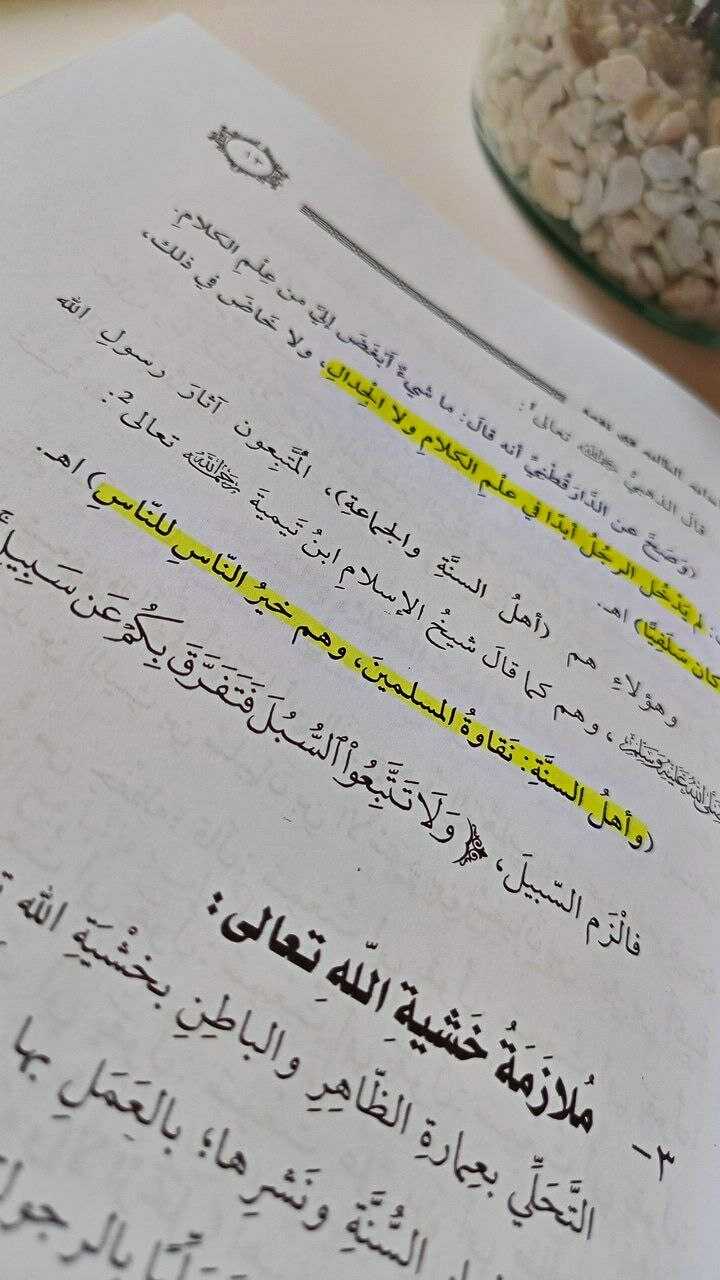 ١٣
قال الذهبيُّ رَحِمَهُ اللهُ تعالى1:
(وَصَحَّ عن الدَّارَقُطْنِيِّ أنه قال: ما شيءٌ أَبْغَضَ إليَّ من عِلْمِ الكلامِ.
لم يَدْخُل الرجُلُ أبدًا في علْمِ الكلامِ ولا الجِدالِ، ولا خَاضَ في ذلك،
كان سَلَفِيًّا) اهـ.
وهؤلاءِ هم (أهلُ السنَّةِ والجماعةِ)، المُتَّبِعون آثارَ رسولِ الله
صَلَّى اللهُ عَلَيْهِ وَسَلَّمَ، وهم كما قالَ شيخُ الإسلامِ ابنُ تَيميةَ رَحِمَهُ اللهُ تعالى2:
(وأهلُ السنَّةِ: نَقاوةُ المسلمينَ، وهم خيرُ النّاسِ للنّاسِ) اهـ.
فالْزَم السّبيلَ، ﴿وَلَا تَتَّبِعُوا۟ ٱلسُّبُلَ فَتَفَرَّقَ بِكُمْ عَن سَبِيلِ
٣- مُلازَمَةُ خَشيةِ اللّهِ تعالى:
التَّحَلِّي بعِمارةِ الظّاهِرِ والباطِنِ بخَشْيَةِ الله
السُّنَّةِ ونَشرِها؛ بالعَمَلِ بها